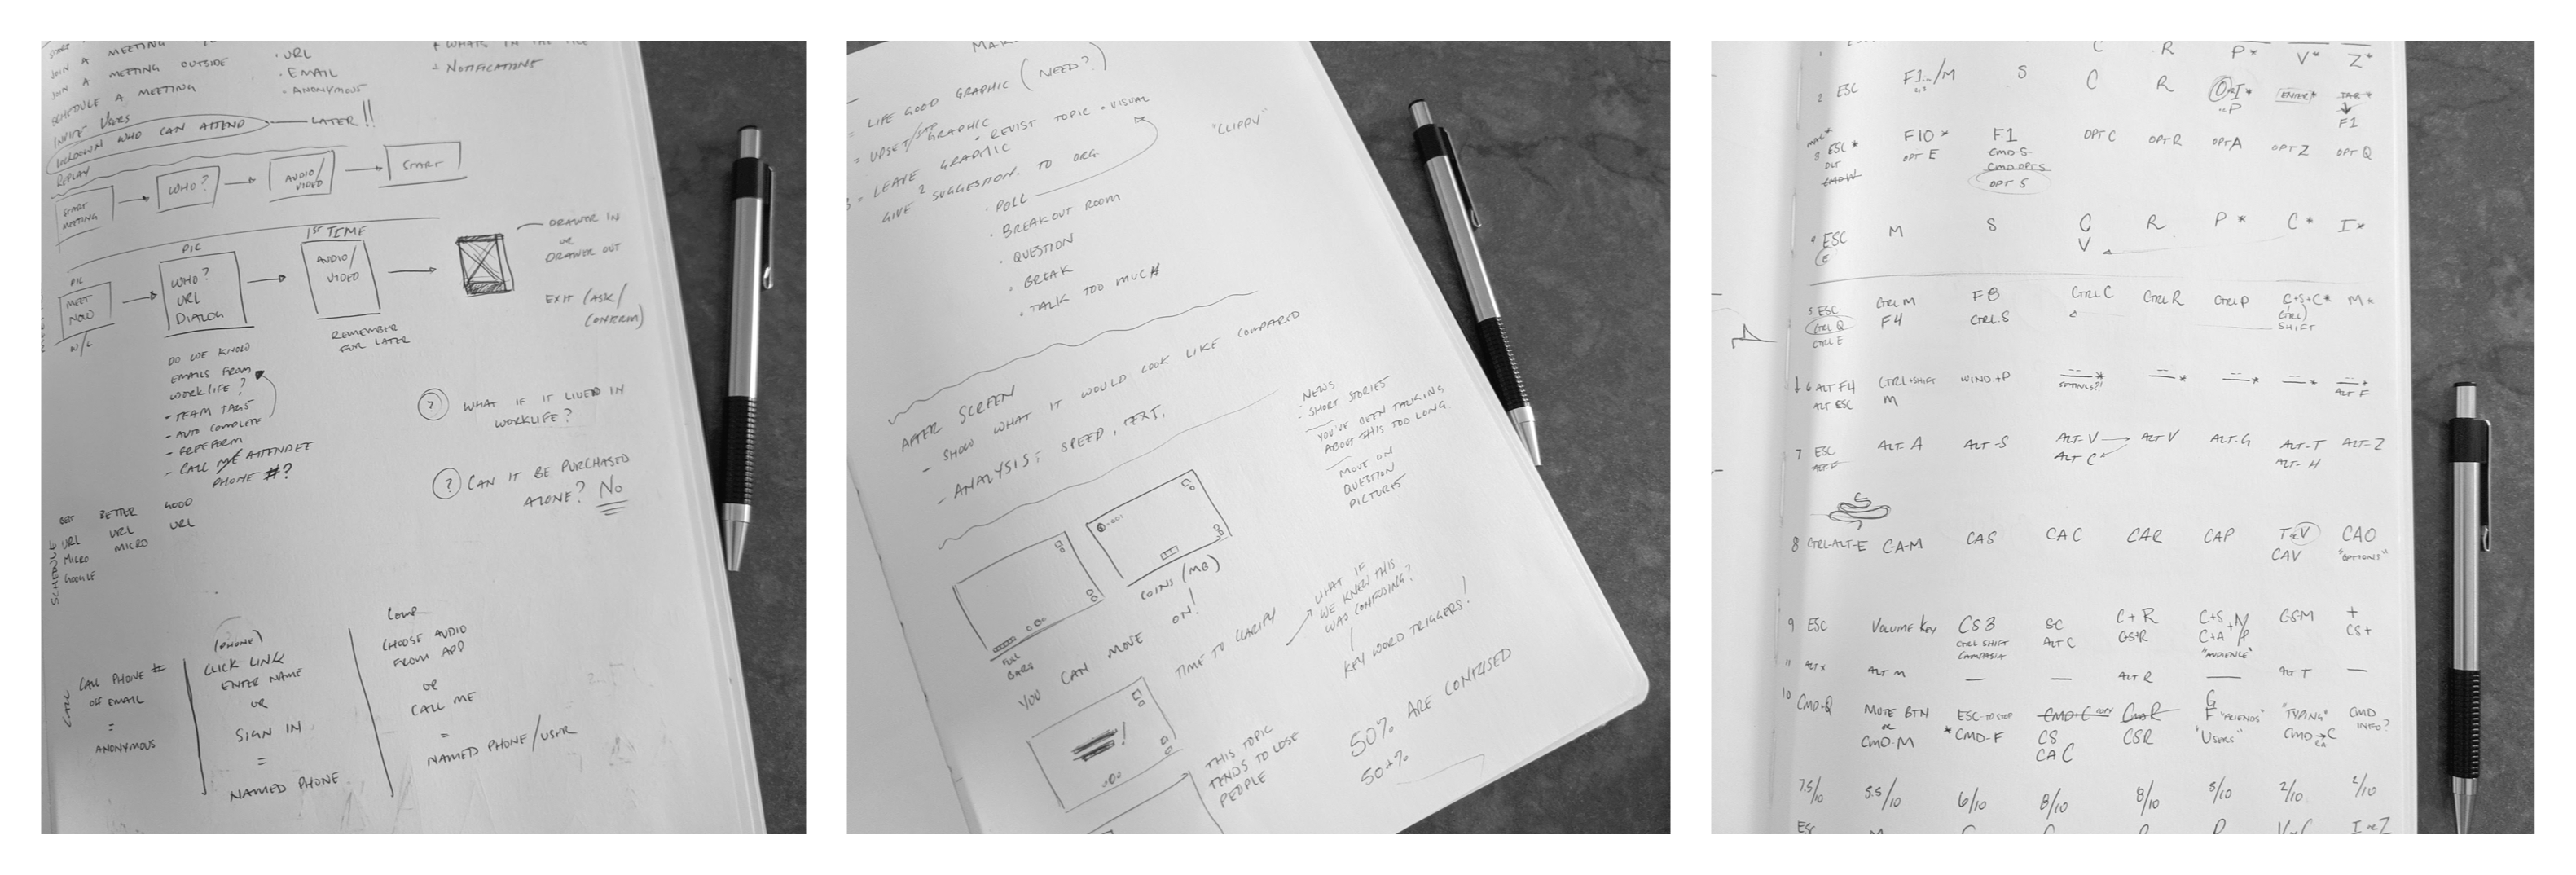 JOIN A MEETING
JOIN A MEETING OUTSIDE
SCHEDULE A MEETING
INVITE USERS
LOCKDOWN WHO CAN ATTEND — LATER!!
REPLAY
· URL
· EMAIL
· ANONYMOUS
+ WHATS IN THE
+ NOTIFICATIONS
START MEETING
WHO?
AUDIO/
VIDEO
START
PIC
MEET
NOW
W/L
PIC
WHO?
URL
DIALOG
1ST TIME
AUDIO/
VIDEO
REMEMBER
FOR LATER
DRAWER IN
OR
DRAWER OUT
EXIT (ASK/
CONFIRM)
DO WE KNOW
EMAILS FROM
WORKLIFE?
- TEAM TAGS
- AUTO COMPLETE
- FREEFORM
- CALL ME ATTENDEE
PHONE #?
? WHAT IF IT LIVED IN
WORKLIFE?
? CAN IT BE PURCHASED
ALONE? NO
SCHEDULE
BETTER GOOD
URL URL URL
MICRO MICRO
GOOGLE
CALL
CALL PHONE #
OFF EMAIL
=
ANONYMOUS
(PHONE)
CLICK LINK
ENTER NAME
OR
SIGN IN
=
NAMED PHONE
COMP
CHOOSE AUDIO
FROM APP
OR
CALL ME
=
NAMED PHONE/USER
= LIFE GOOD GRAPHIC (NEED?)
= UPSET/STOP GRAPHIC
3 = LEAVE GRAPHIC
· REVISIT TOPIC · VISUAL
GIVE 2 SUGGESTION TO ORG
"CLIPPY"
· POLL
· BREAKOUT ROOM
· QUESTION
· BREAK
· TALK TOO MUCH
AFTER SCREEN
- SHOW WHAT IT WOULD LOOK LIKE COMPARED
- ANALYSIS, SPEED, TEXT,
NEWS
- SHORT STORIES
YOU'VE BEEN TALKING
ABOUT THIS TOO LONG.
MOVE ON
QUESTION
PICTURES
BARS
COINS (MB)
YOU CAN MOVE ON!
TIME TO CLARIFY
WHAT IF
WE KNEW THIS
WAS CONFUSING?
KEY WORD TRIGGERS!
THIS TOPIC
TENDS TO LOSE
PEOPLE
50% ARE CONFUSED
50+%
C R P* V* Z*
2 ESC F1../M S C R O or I* ENTER* TAB*
F1
MAC*
3 ESC* F10* F1 OPT C OPT R OPT A OPT Z OPT Q
OPT E CMD-S
CMD-W CMD OPT S
OPT S
4 ESC M S C R P* C* I*
E V
5 ESC CTRL M F8 CTRL C CTRL R CTRL P C+S+C* M*
CTRL Q F4 CTRL S CTRL
CTRL E SHIFT
6 ALT F4 CTRL+SHIFT WIND+P
ALT ESC M ALT F
7 ESC ALT-A ALT-S ALT-V ALT V ALT-G ALT-T ALT-Z
ALT-F ALT C ALT-H
8 CTRL-ALT-E C-A-M CAS CAC CAR CAP T or V CAO
CAV "OPTIONS"
9 ESC VOLUME KEY CS3 SC C+R C+S CSM +
CTRL SHIFT ALT C C+A CS+
CAMTASIA "AUDIENCE"
11 ALT X ALT M — — ALT R — ALT T —
10 CMD+Q MUTE BTN ESC-TO STOP CMD+C COPY CMD R G "TYPING" CMD
OR *CMD-F CS CSR F "FRIENDS" CMD→C INFO?
CMD-M CAC "USERS"
7.5/10 5.5/10 6/10 8/10 8/10 5/10 2/10 2/10
ESC